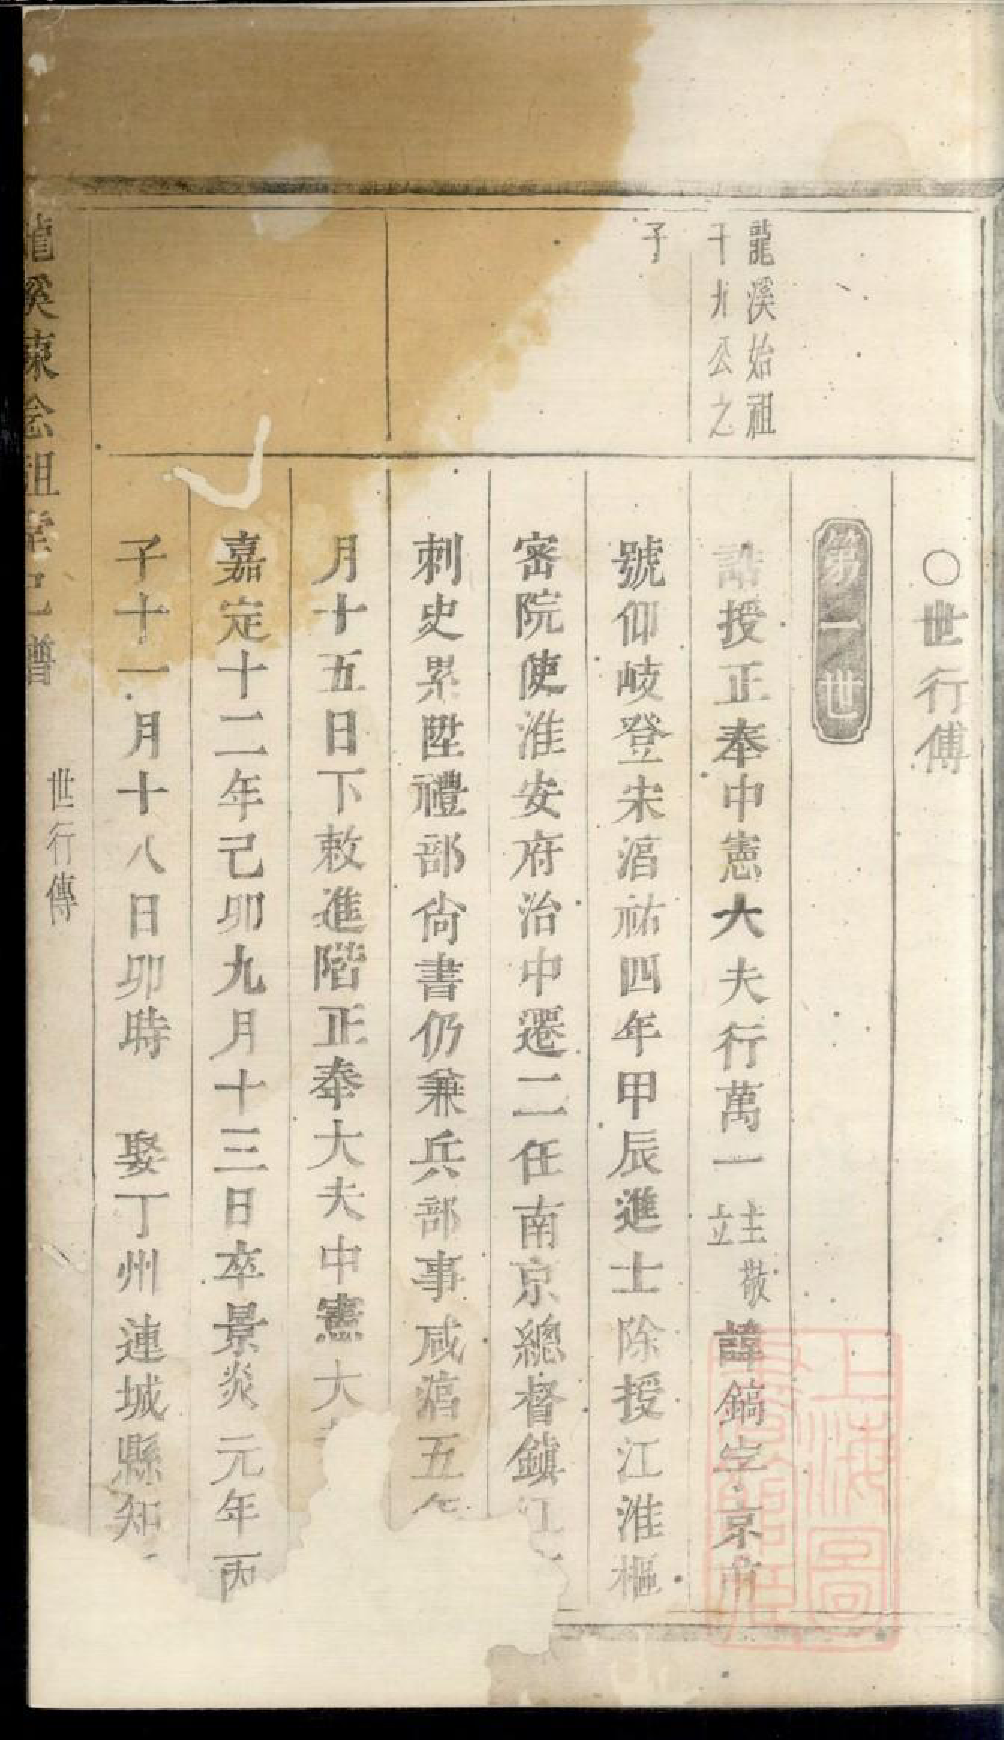 ○世行傳
第一世
龍溪始祖
千九公之
子
誥授正奉中憲大夫行萬一
主敬
立
諱鎬字京甫
號仰岐登宋湻祐四年甲辰進士除授江淮樞
密院使淮安府治中遷二任南京總督鎮江
刺史累陞禮部尙書仍兼兵部事咸湻五年
月十五日下敕進階正奉大夫中憲大
嘉定十二年己卯九月十三日卒景炎元年丙
子十一月十八日卯時　娶丁州連城縣知
龍溪陳
祖
譜
世行傳
上海圖